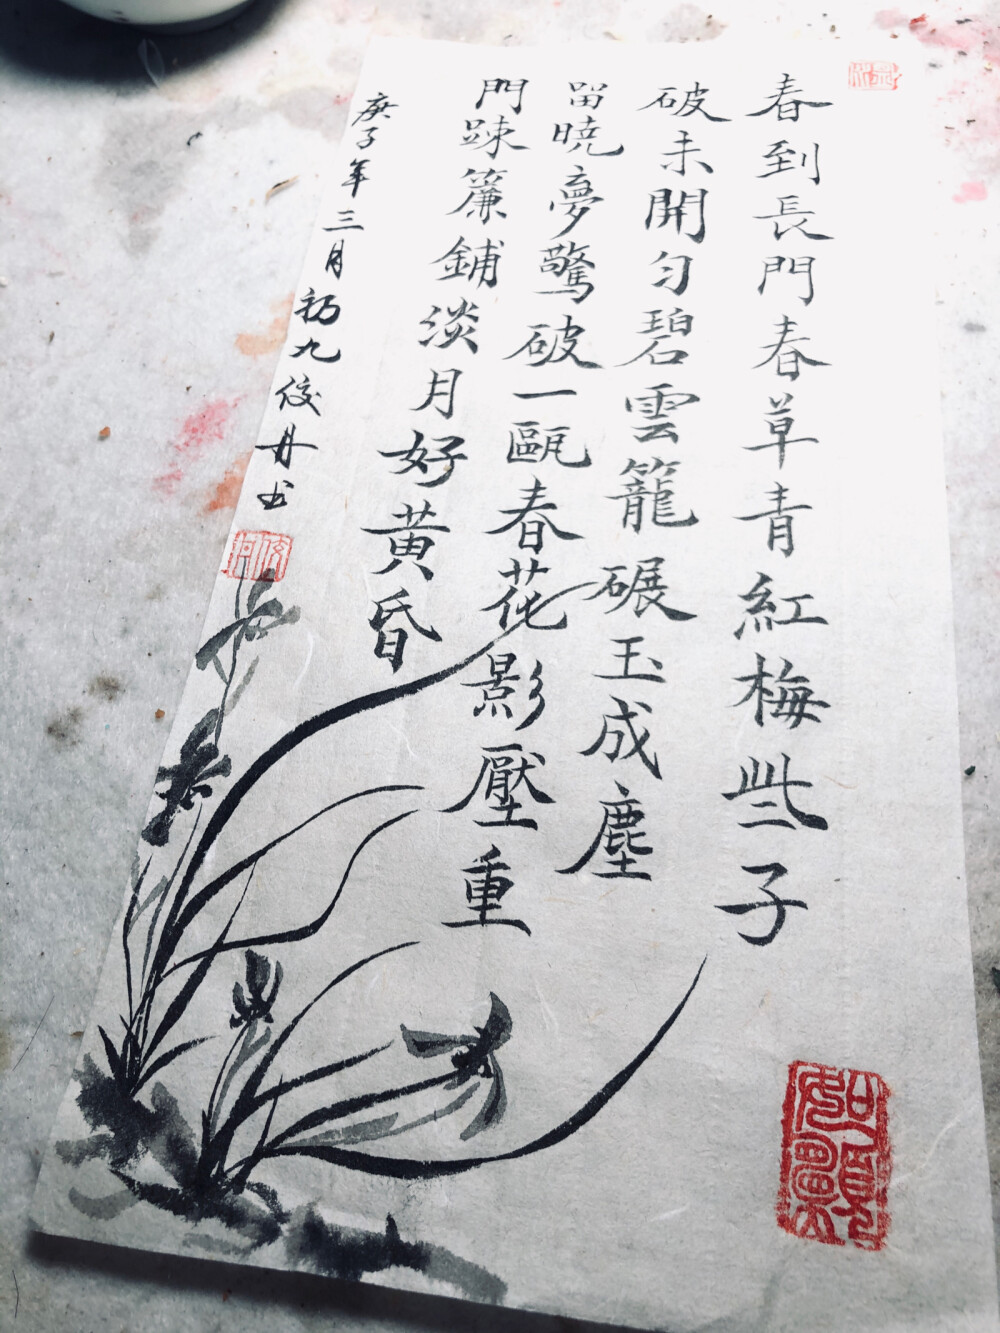 春到長門春草青紅梅些子
破未開匀碧雲籠碾玉成塵
留曉夢驚破一甌春花影壓重
門踈簾鋪淡月好黄昏
庚子年三月初九佼丹书